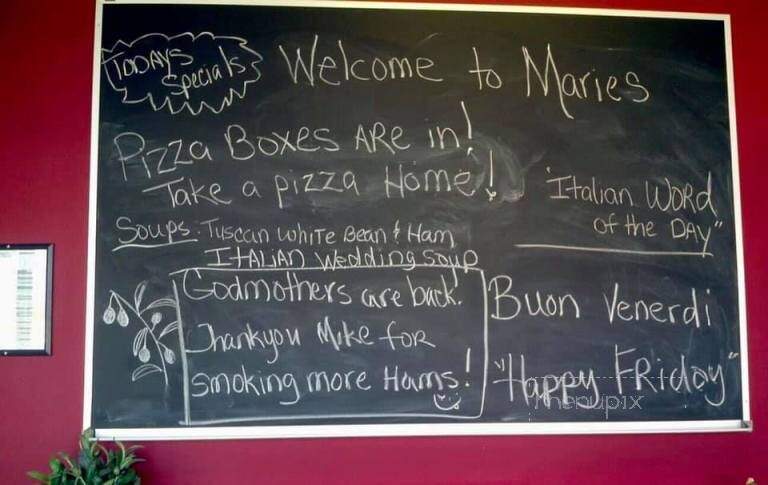 TODAYS
Specials
Welcome to Maries
Pizza Boxes ARe in!
Take a pizza Home!
Soups: Tuscan White Bean & Ham
ITALIAN Wedding Soup
Godmothers are back.
Thankyou Mike for
smoking more Hams!
"Italian WORd
of the DAY"
Buon Venerdi
"Happy FRiday"
menupix